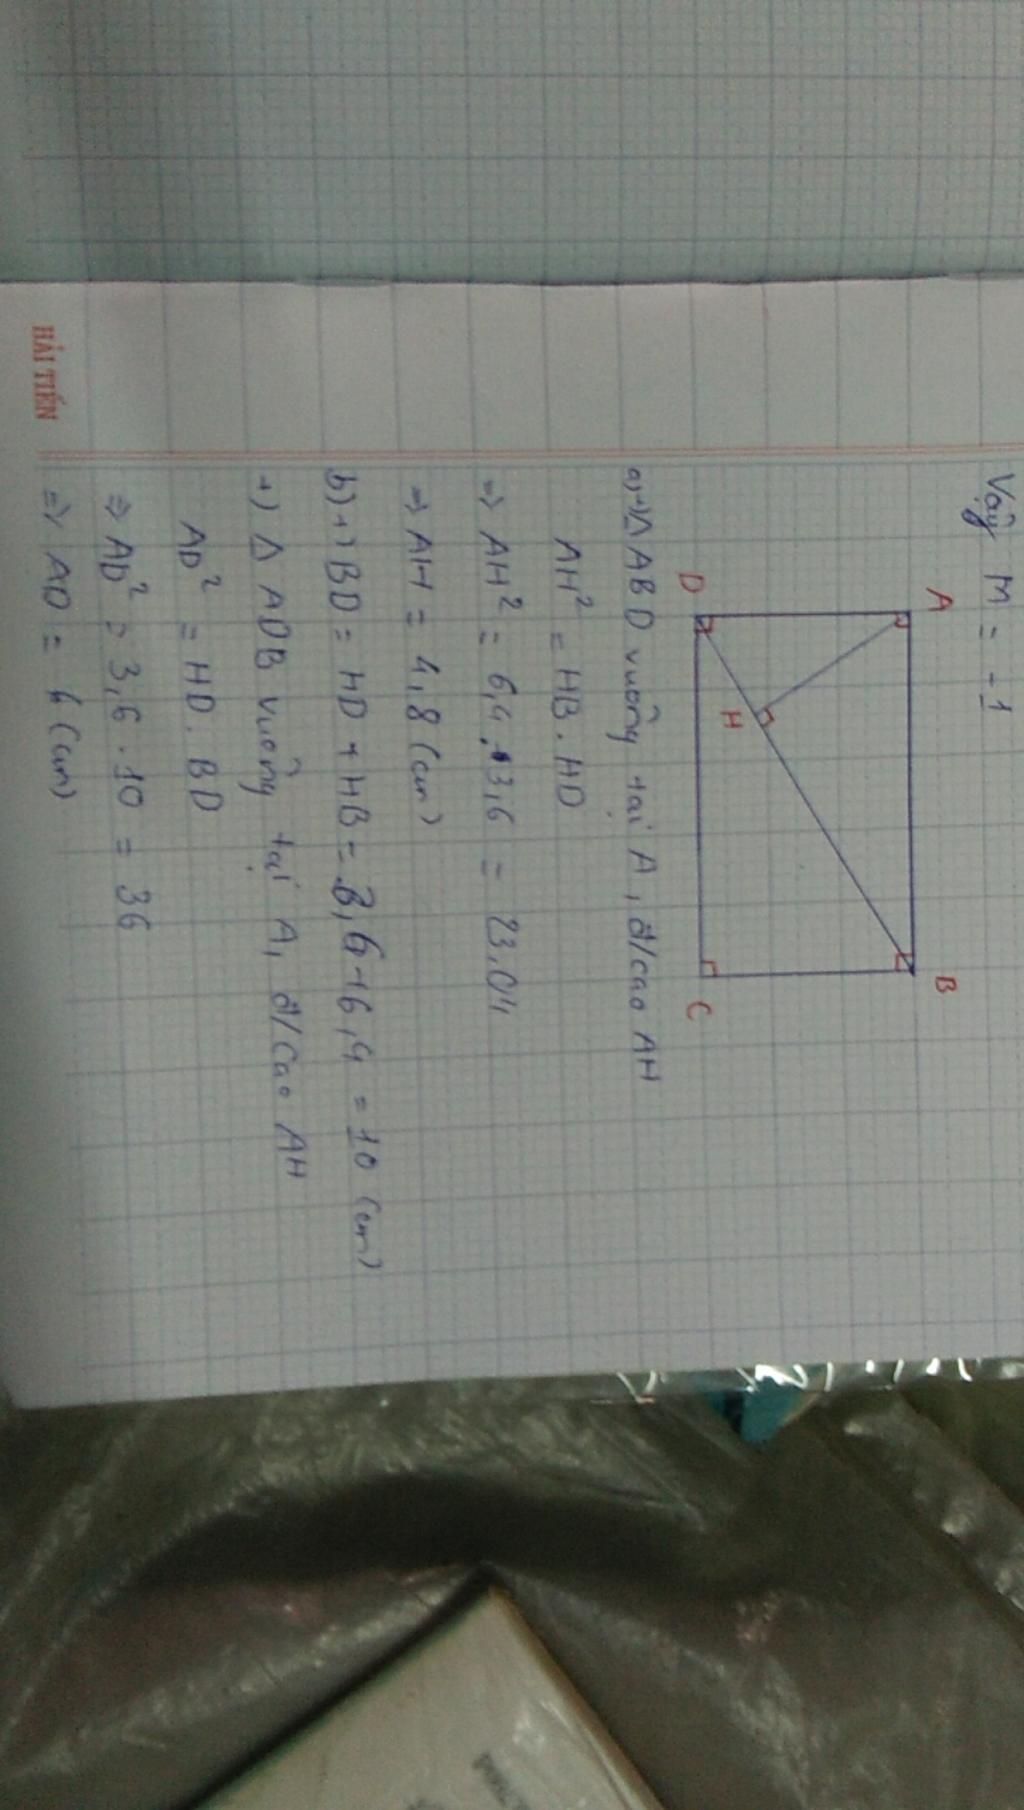 Vậy M = -1
A
B
D
H
C
a) +) Δ ABD vuông tại A, đ/cao AH
AH² = HB . HD
=> AH² = 6,4 . 3,6 = 23,04
=> AH = 4,8 (cm)
b) +) BD = HD + HB = 3,6 + 6,4 = 10 (cm)
+) Δ ADB vuông tại A, đ/cao AH
AD² = HD . BD
=> AD² = 3,6 . 10 = 36
=> AD = 6 (cm)
HẢI TIẾN